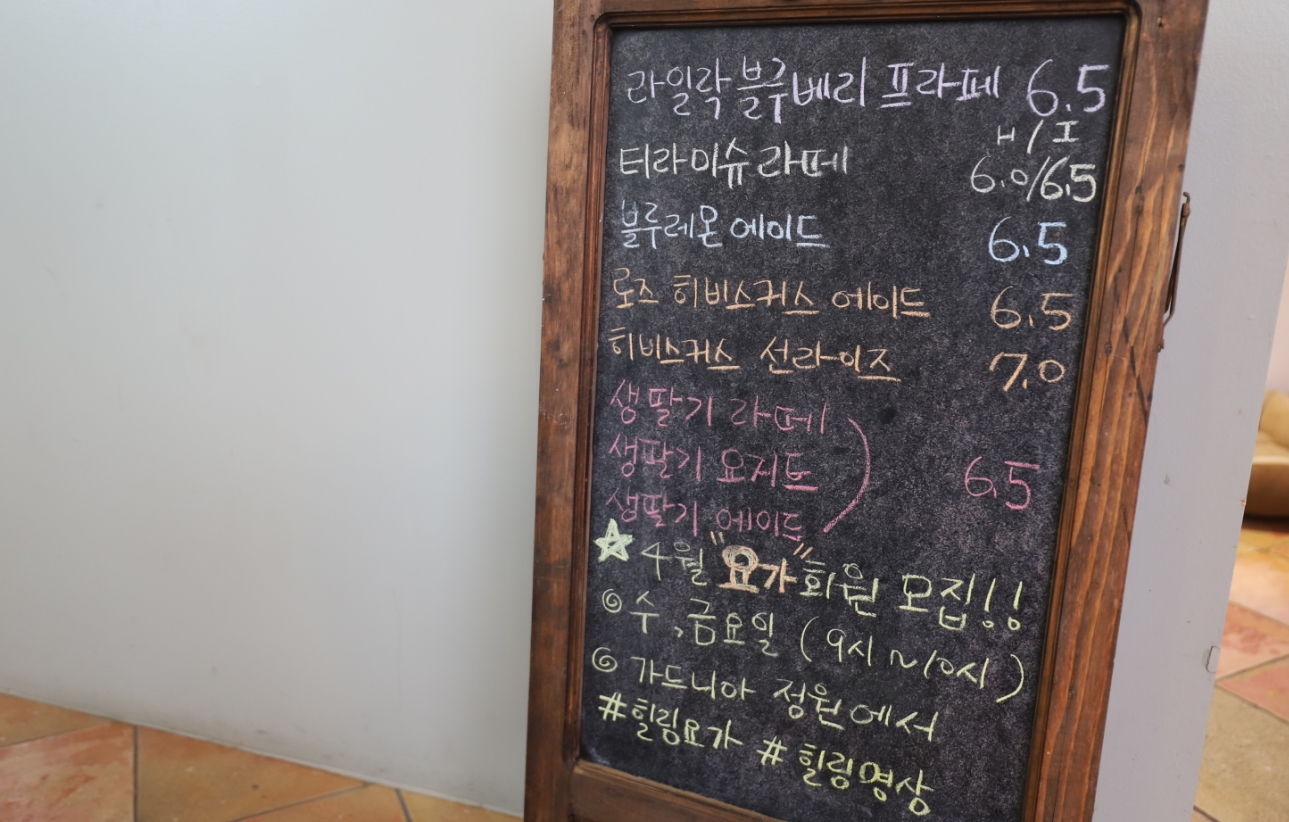 라일락 블루베리 프라페 6.5
H / I
티라미슈 라떼 6.0/6.5
블루레몬 에이드 6.5
로즈 히비스커스 에이드 6.5
히비스커스 선라이즈 7.0
생딸기 라떼
생딸기 요거트 6.5
생딸기 에이드
☆ 4월 "요가" 회원 모집!!
수, 금요일 (9시 ~ 10시)
가드니아 정원에서
#힐링요가 #힐링명상